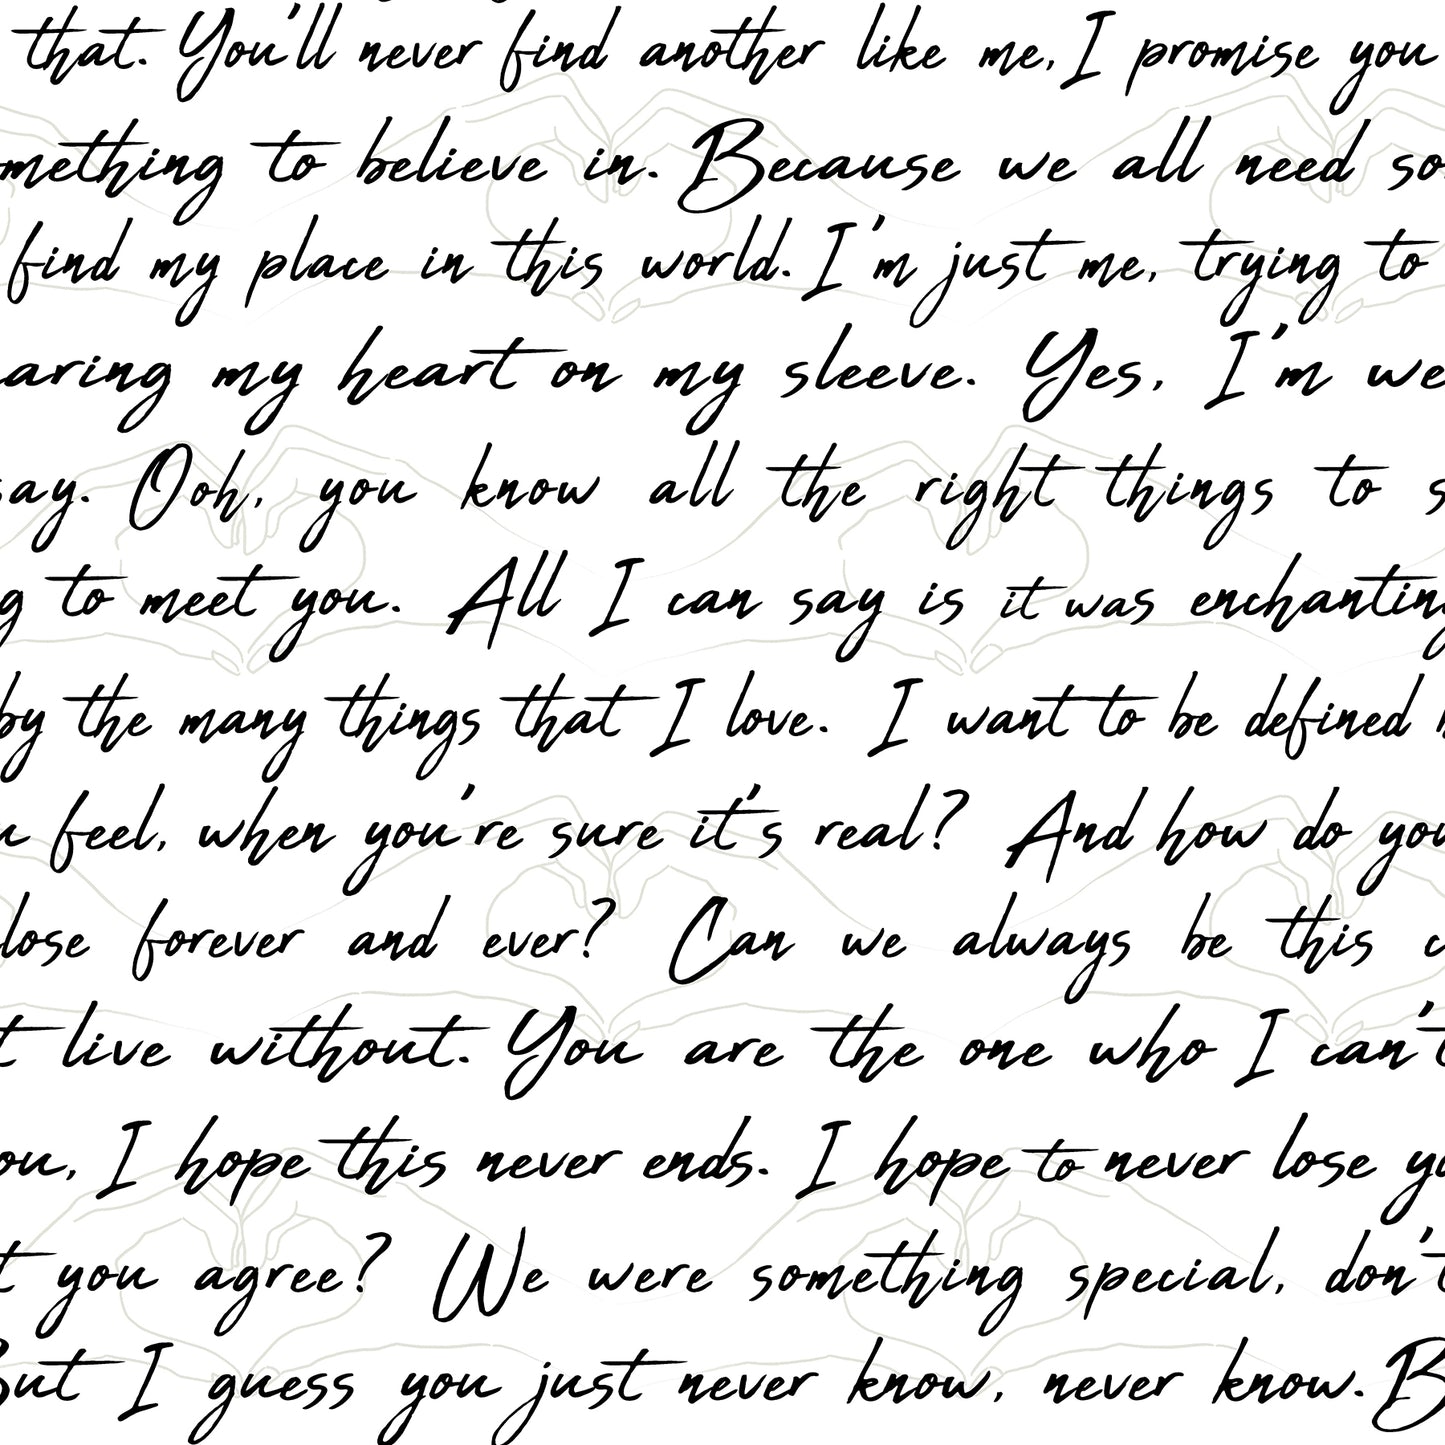 that. You'll never find another like me, I promise you
mething to believe in. Because we all need so
find my place in this world. I'm just me, trying to
aring my heart on my sleeve. Yes, I'm we
say. Ooh, you know all the right things to s
g to meet you. All I can say is it was enchanting
by the many things that I love. I want to be defined
u feel, when you're sure it's real? And how do you
lose forever and ever? Can we always be this c
t live without. You are the one who I can't
ou, I hope this never ends. I hope to never lose yo
t you agree? We were something special, don't
But I guess you just never know, never know. B